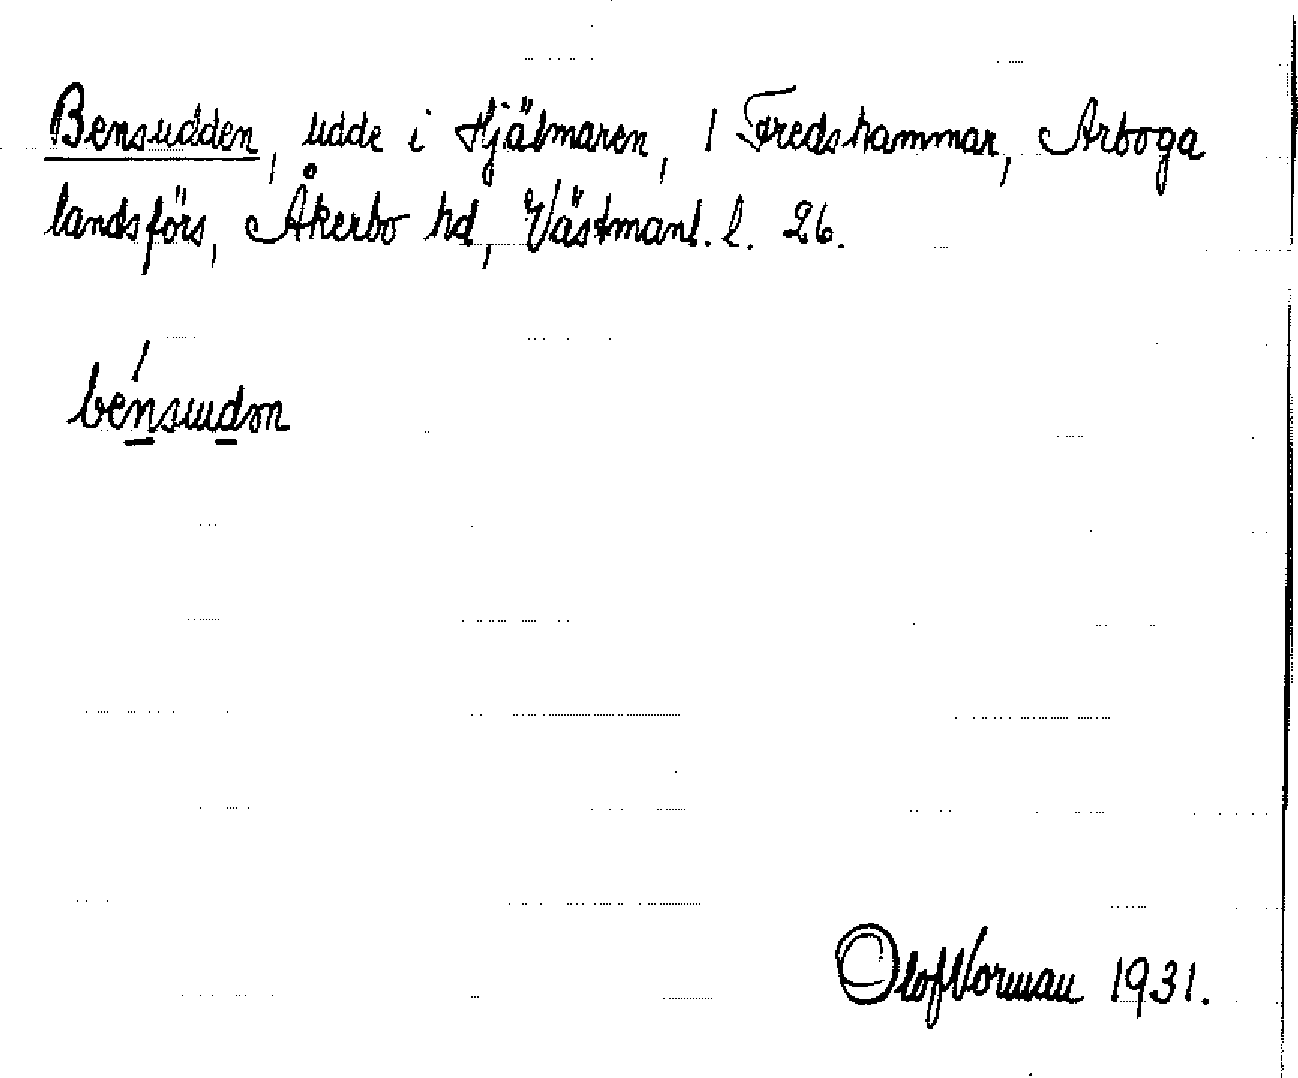 Bensudden, udde i Hjälmaren, 1 Fredshammar, Arboga
landsförs, Åkerbo hd, Västmanl. l. 26.
bensudən
Olof Norman 1931.